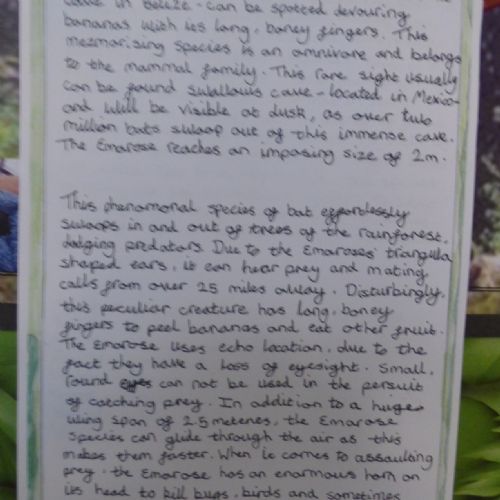 cave in Belize - can be spotted devouring
bananas with its long, boney fingers. This
mezmorising species is an omnivore and belongs
to the mammal family. This rare sight usually
can be found swallows cave - located in Mexico
and will be visible at dusk, as over two
million bats swoop out of this immense cave.
The Emarose reaches an imposing size of 2m.
This phenomonal species of bat effortlessly
swoops in and out of trees of the rainforest,
dodging predators. Due to the Emaroses' triangula
shaped ears, it can hear prey and mating
calls from over 25 miles away. Disturbingly,
this peculiar creature has long, boney
fingers to peel bananas and eat other fruit.
The Emarose uses echo location, due to the
fact they have a loss of eyesight. Small,
round eyes can not be used in the persuit
of catching prey. In addition to a huge
wing span of 2.5 meteres, the Emarose
species can glide through the air as this
makes them faster. When it comes to assaulting
prey, the Emarose has an enormous horn on
its head to kill bugs, birds and sometimes